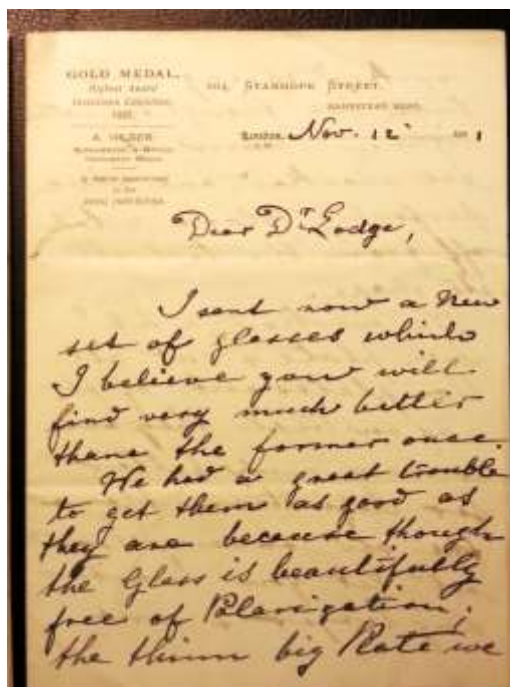 GOLD MEDAL,
Highest Award
Inventions Exhibition,
204, STANHOPE STREET,
HAMPSTEAD ROAD,
A. HILGER,
London, Nov. 12 189 1
Dear Dr Lodge,
I sent now a new
set of glasses which
I believe you will
find very much better
thane the former once.
We had a great trouble
to get them as good as
they are because though
the Glass is beautifully
free of Polarization;
the thinn big Plate we